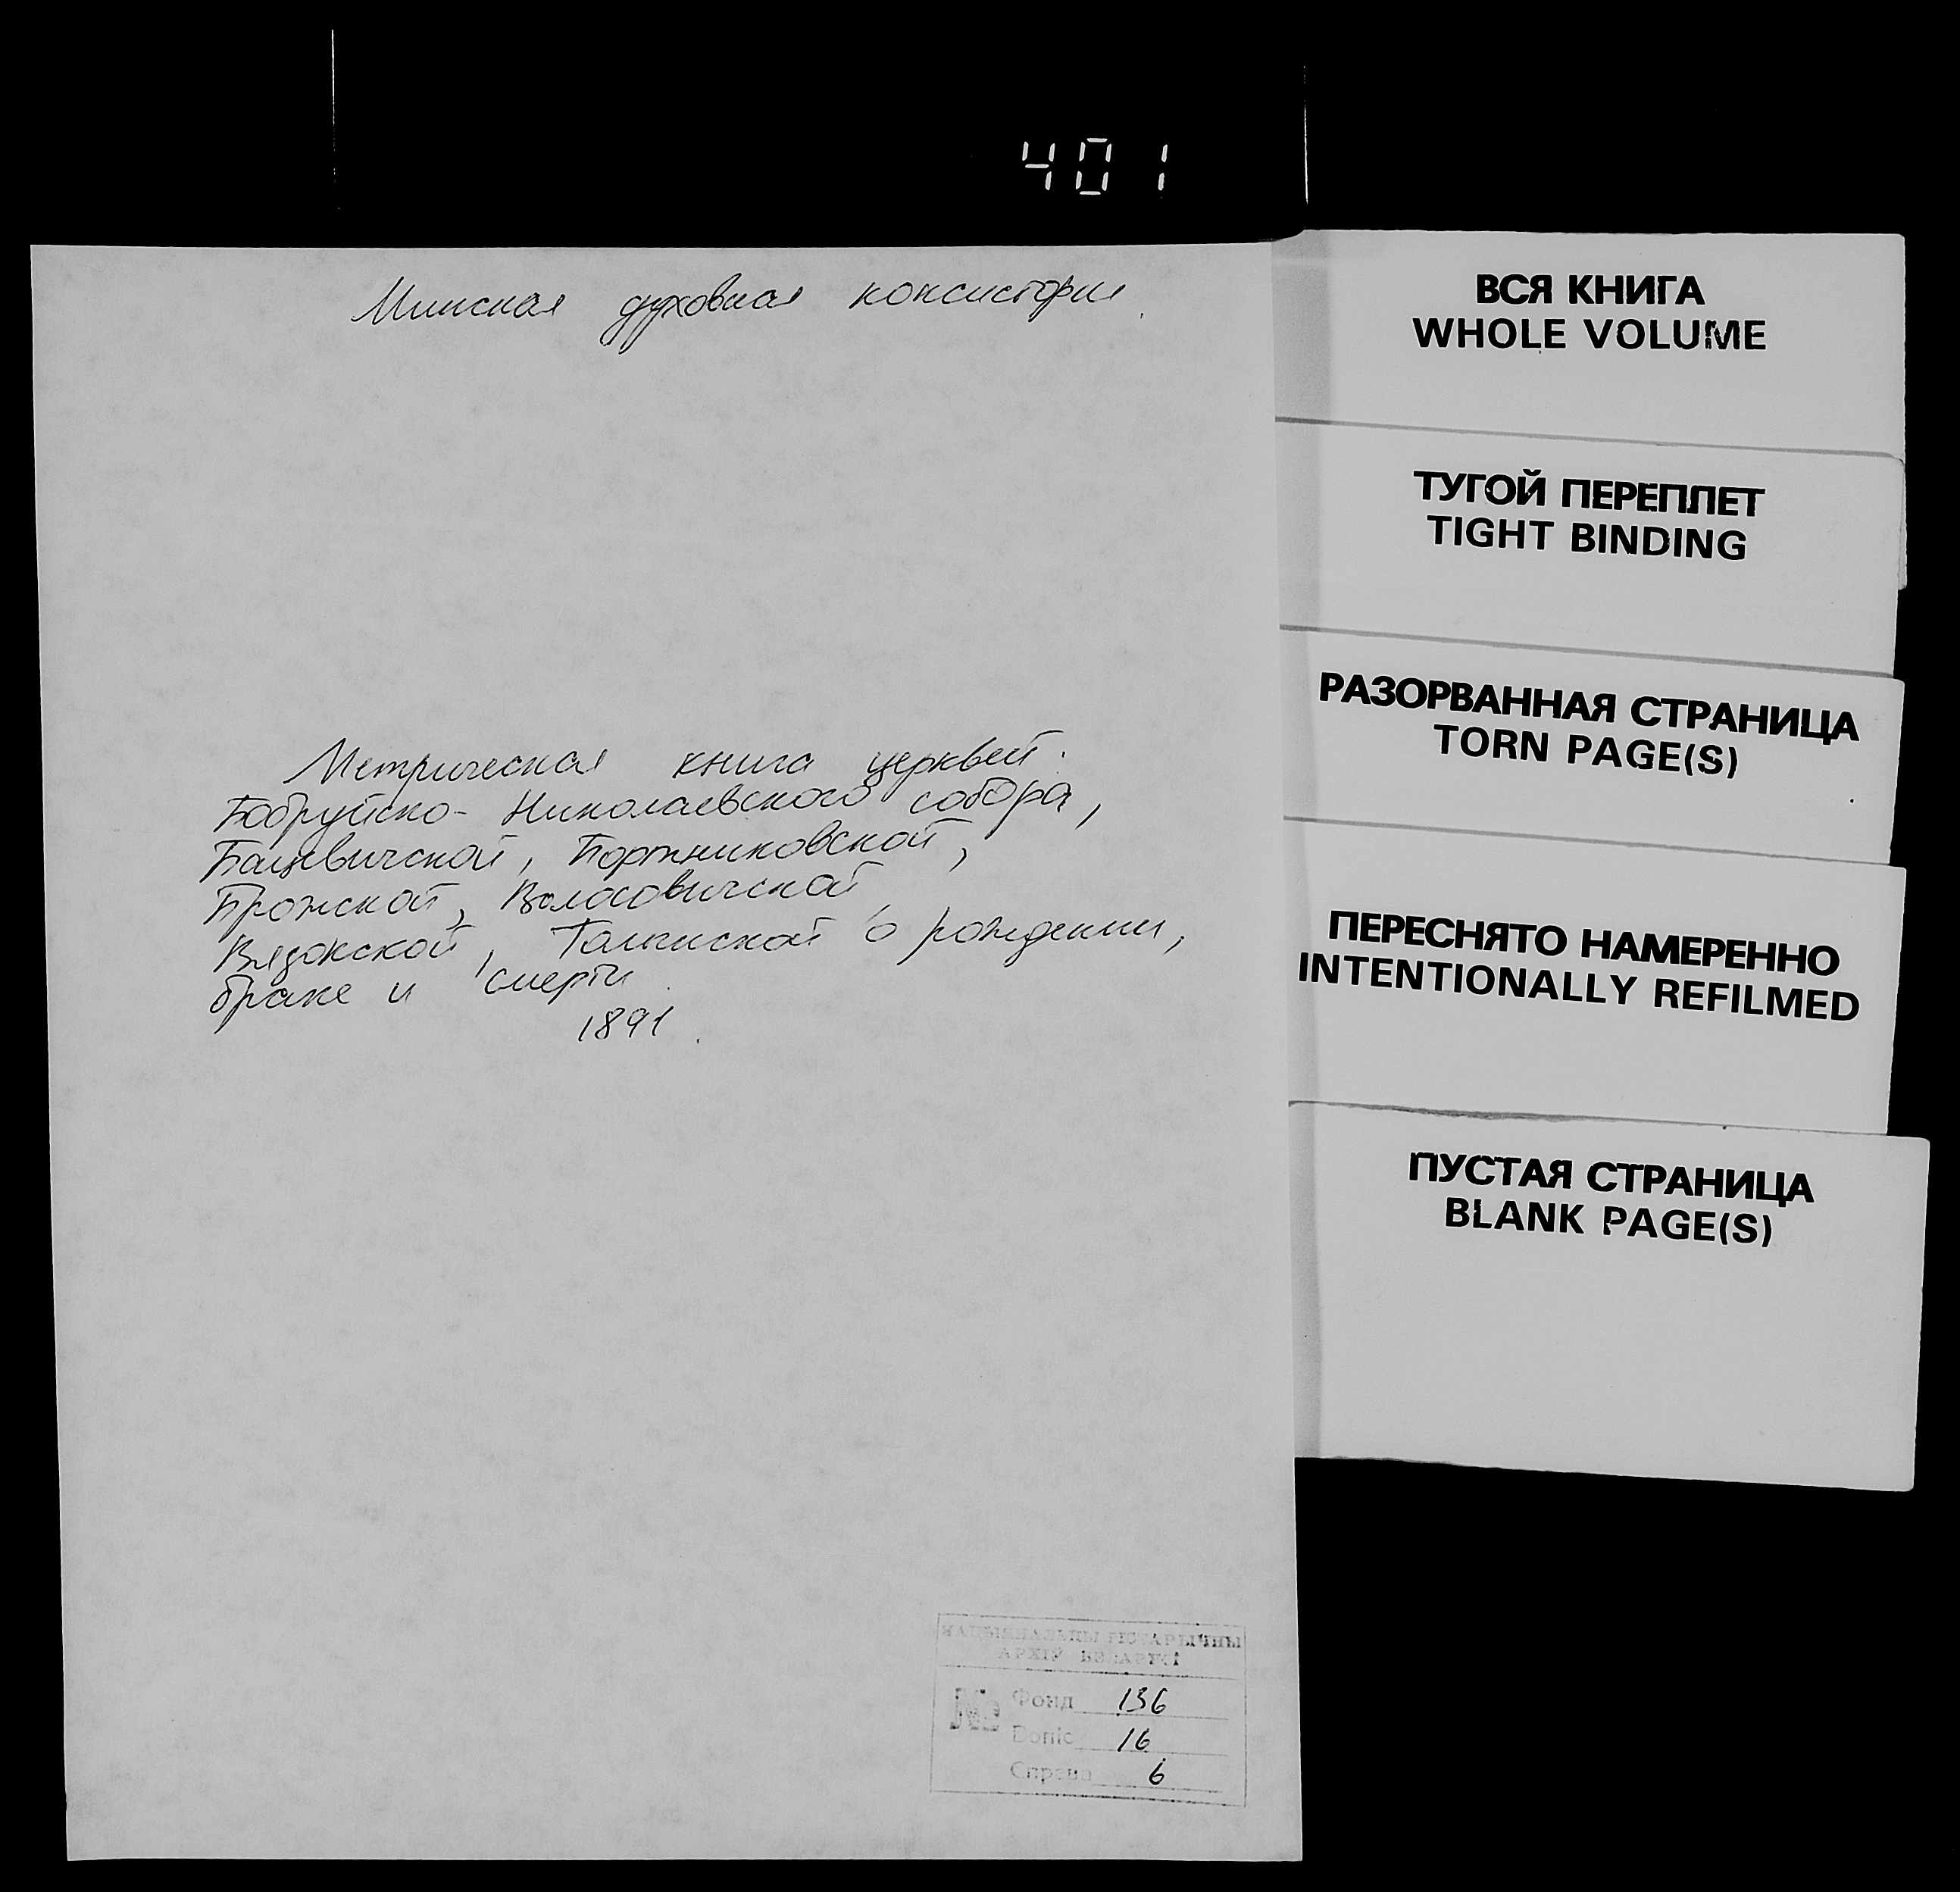 401
Минская духовная консистория
Метрическая книга церквей:
Бобруйско-Николаевского собора,
Бацевичской, Бортниковской,
Брожской, Волосовичской,
Вязокской, Голынской о рождении,
браке и смерти
1891
НАЦЫЯНАЛЬНЫ ГІСТАРЫЧНЫ
АРХІЎ БЕЛАРУСІ
№ Фонд 136
Вопіс 16
Справа 6
ВСЯ КНИГА
WHOLE VOLUME
ТУГОЙ ПЕРЕПЛЕТ
TIGHT BINDING
РАЗОРВАННАЯ СТРАНИЦА
TORN PAGE(S)
ПЕРЕСНЯТО НАМЕРЕННО
INTENTIONALLY REFILMED
ПУСТАЯ СТРАНИЦА
BLANK PAGE(S)